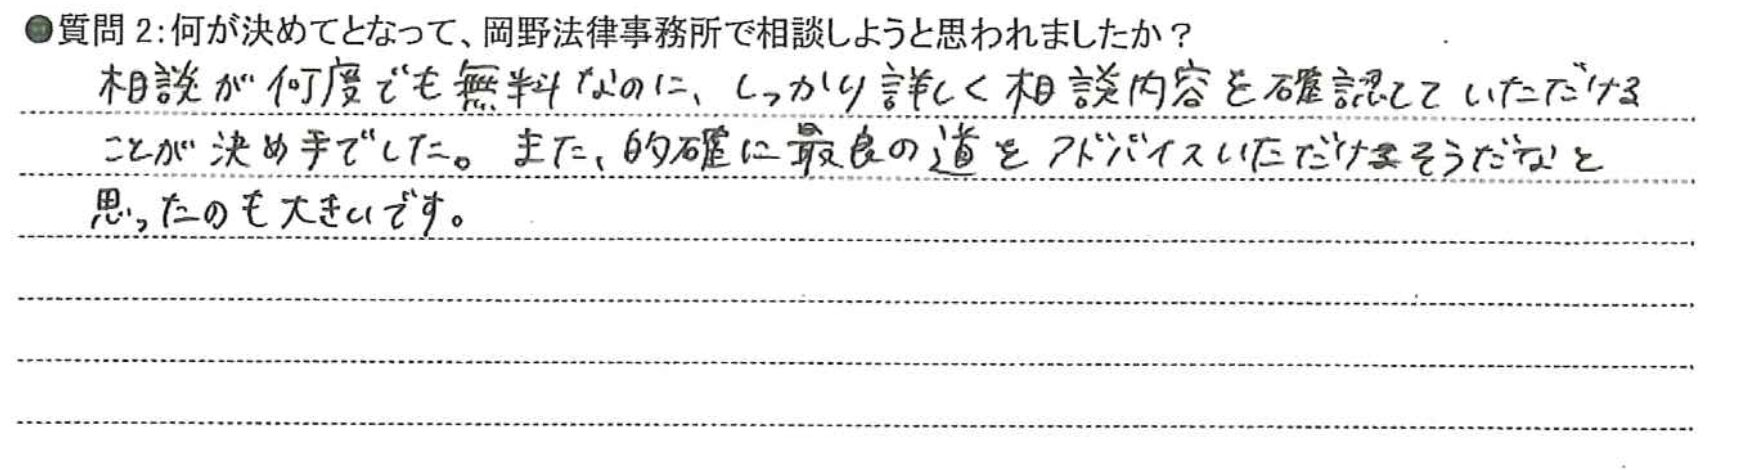 ●質問2:何が決めてとなって、岡野法律事務所で相談しようと思われましたか?
相談が何度でも無料なのに、しっかり詳しく相談内容を確認してていただける
ことが決め手でした。また、的確に最良の道をアドバイスいただけそうだなと
思ったのも大きいです。